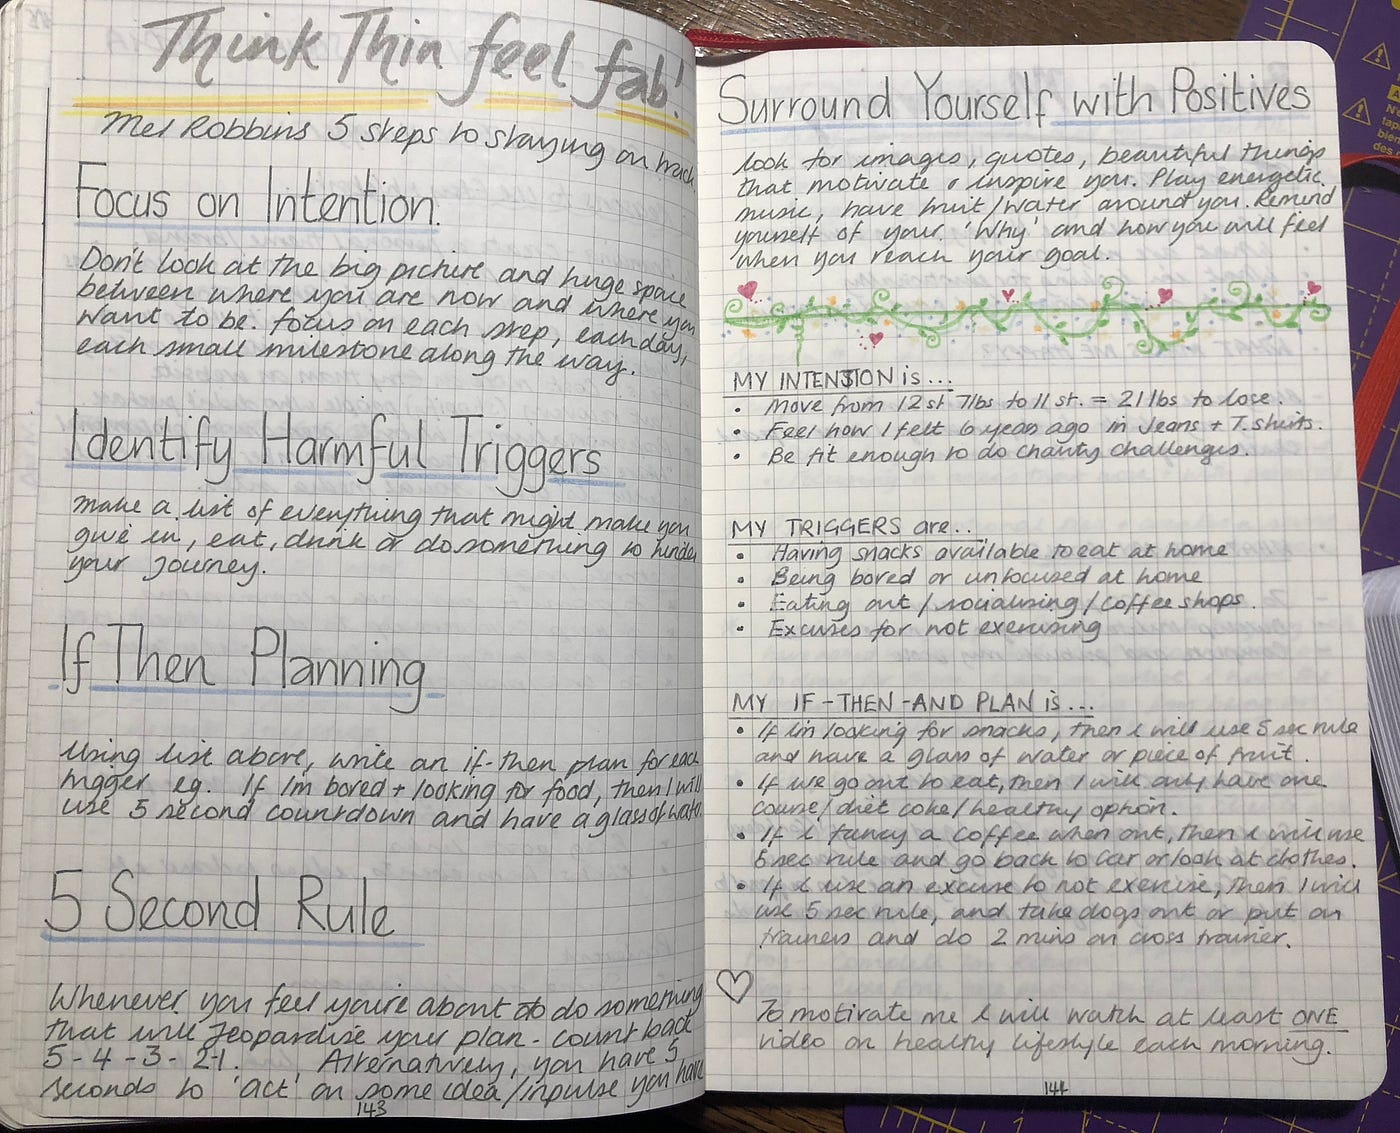 Think Thin feel fab!
Mel Robbins 5 steps to staying on track
Focus on Intention.
Don't look at the big picture and huge space
between where you are now and where you
want to be. focus on each step, each day,
each small milestone along the way.
Identify Harmful Triggers
Make a list of everything that might make you
give in, eat, drink or do something to hinder
your journey.
If Then Planning
Using list above, write an if-then plan for each
trigger eg. If I'm bored + looking for food, then I will
use 5 second countdown and have a glass of water.
5 Second Rule
Whenever you feel you're about to do something
that will jeopardise your plan - count back
5-4-3-2-1. Alternatively, you have 5
seconds to 'act' on some idea/inpulse you have
143
Surround Yourself with Positives
look for images, quotes, beautiful things
that motivate & inspire you. Play energetic
music, have fruit/water around you. Remind
yourself of your 'Why' and how you will feel
when you reach your goal.
MY INTENTION is...
• Move from 12st 7lbs to 11 st. = 21 lbs to lose.
• Feel how I felt 6 years ago in Jeans + T.shirts.
• Be fit enough to do charity challenges.
MY TRIGGERS are..
• Having snacks available to eat at home
• Being bored or unfocused at home
• Eating out/socialising/coffee shops.
• Excuses for not exercising
MY IF-THEN-AND PLAN is...
• If I'm looking for snacks, then I will use 5 sec rule
and have a glass of water or piece of fruit.
• If we go out to eat, then I will only have one
course/diet coke/healthy option.
• If I fancy a coffee when out, then I will use
5 sec rule and go back to car or look at clothes.
• If I use an excuse to not exercise, then I will
use 5 sec rule, and take dogs out or put on
trainers and do 2 mins on cross trainer.
To motivate me I will watch at least ONE
video on healthy lifestyle each morning.
144